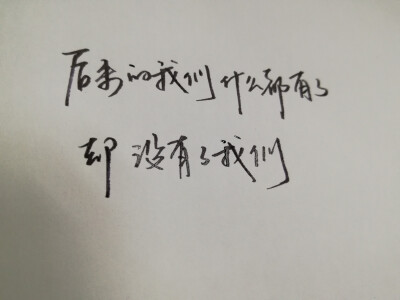 后来的我们什么都有了
却没有了我们